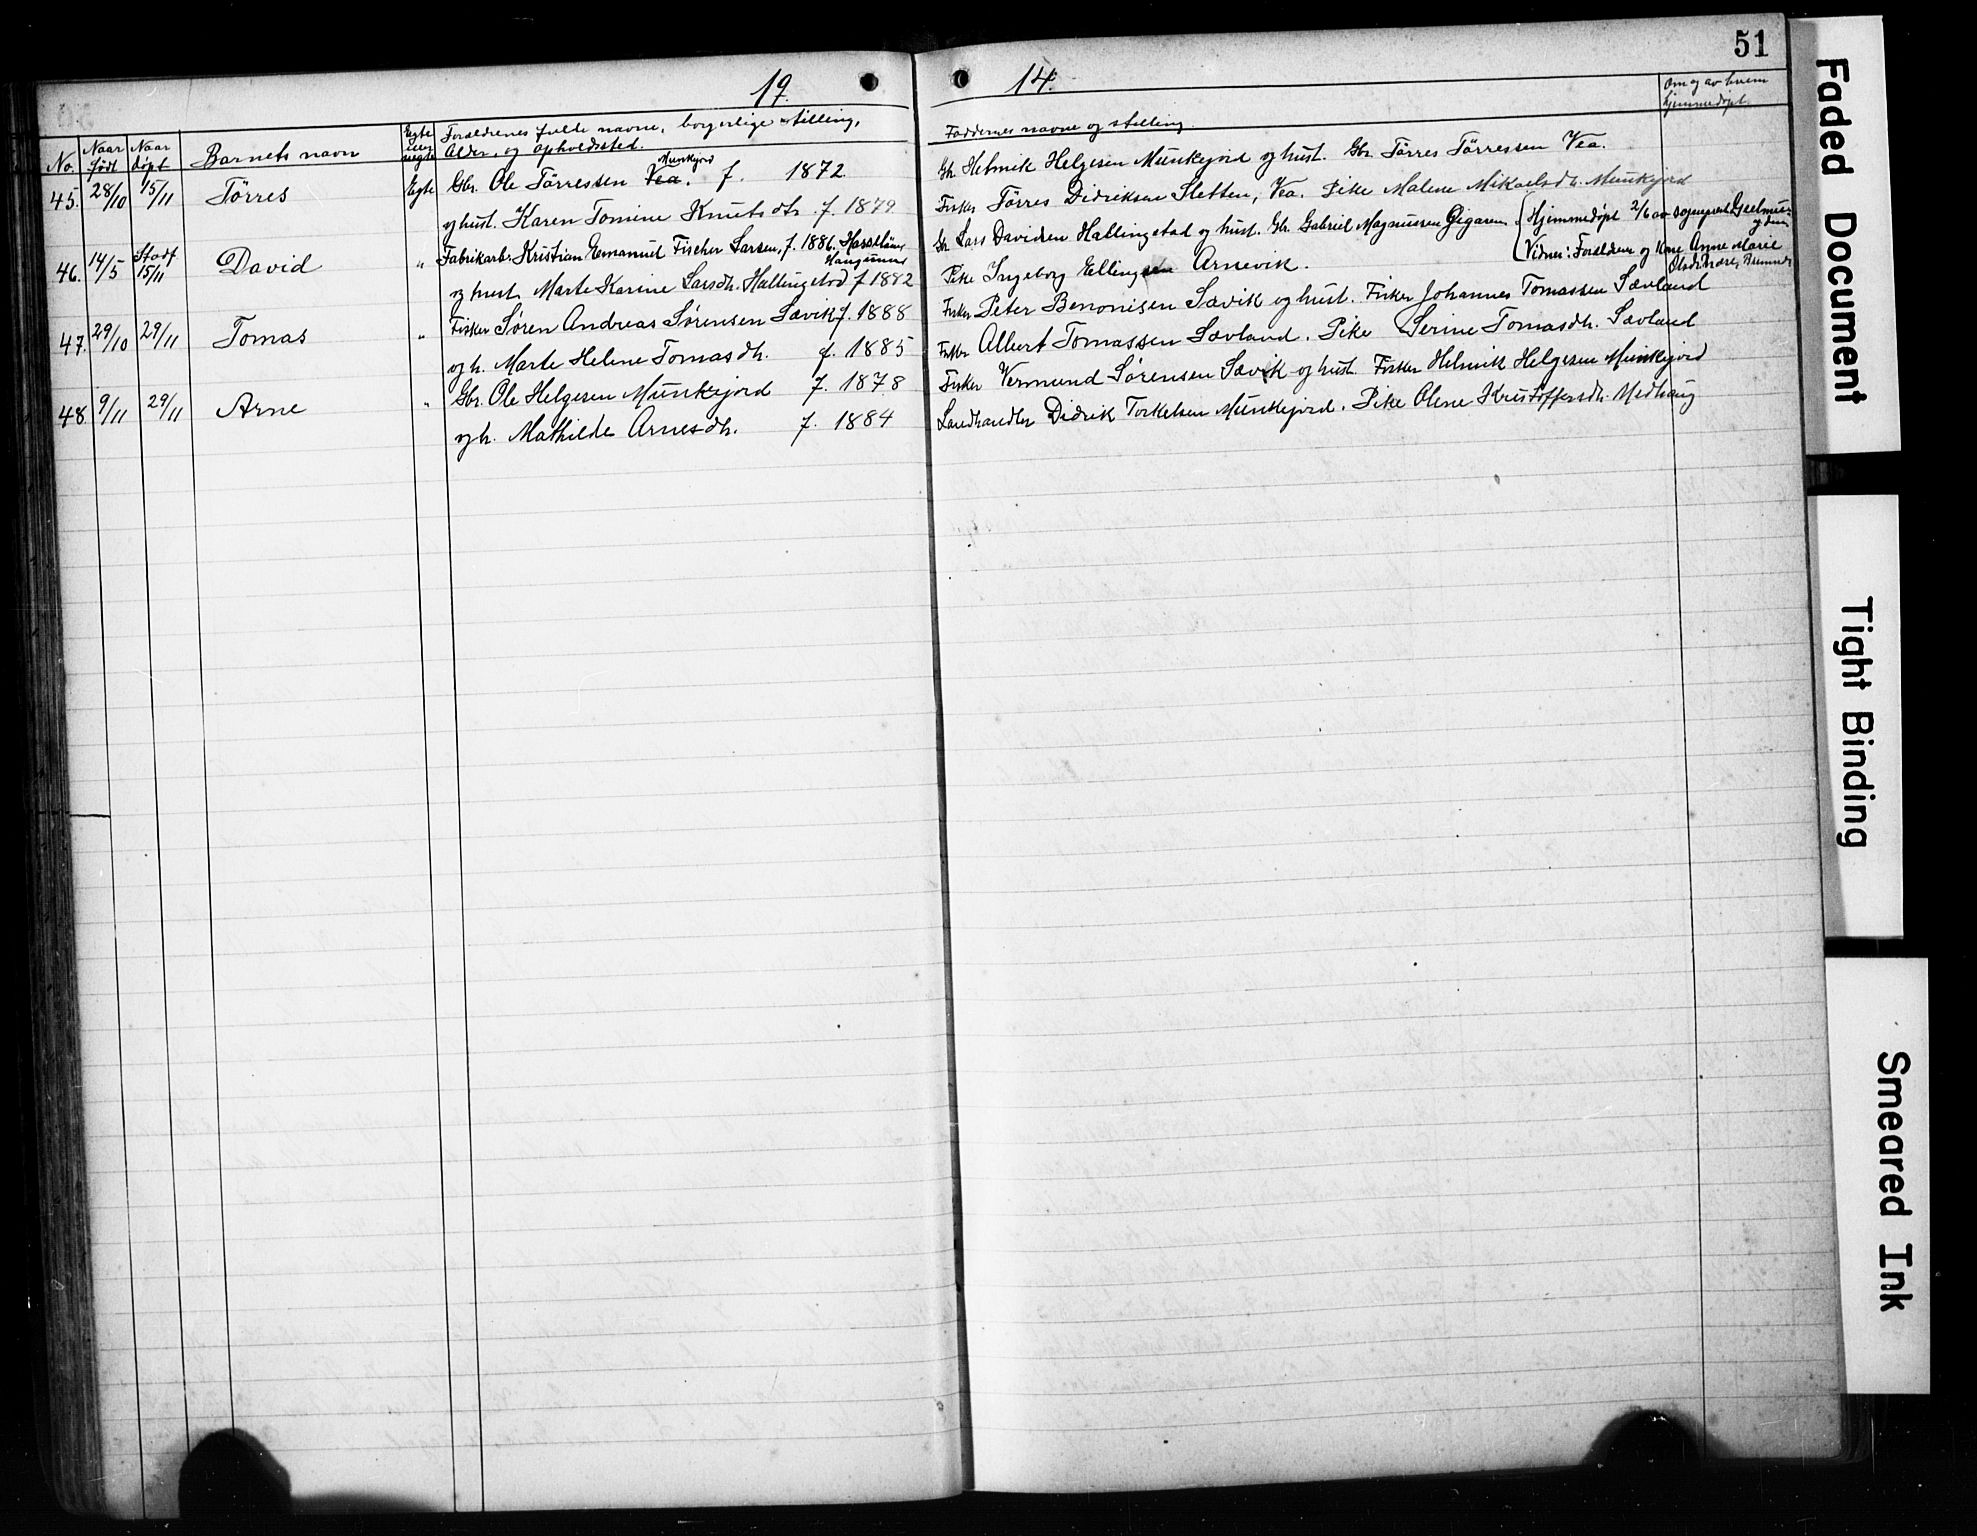 51
19
14.
No.
Naar født
Naar døpt
Barnets navn
Egte eller uegte
Forældrenes fulde navne, borgerlige stilling,
Alder, og opholdssted.
Faddernes navne og stilling
Om og av hvem
hjemmedøpt.
45. 28/10 15/11 Tørres Egte Gbr. Ole Tørressen Vea. Munkejord f. 1872
og hust. Karen Tomine Knutsdtr. f. 1879
Gbr. Helmik Helgesen Munkejord og hust. Gbr. Tørres Tørressen Vea.
Fisker Tørres Didriksen Sletten, Vea. Pike Malene Mikaelsdtr. Munkejord
46. 14/5 Stadf 15/11 David " Fabrikarb. Kristian Emanuel Fischer Larsen, f. 1886. Hasseløen Haugesund
og hust. Marte Karine Larsdtr. Hallingstad f 1882
Gbr. Lars Davidsen Hallingstad og hust. Gbr. Gabriel Magnussen Gigaren.
Pike Ingeborg Ellingsen Arnevik.
(Hjemmedøpt 2/6 av sogneprest Geelmuyden
Vidner: Forældrene og Kone Anne Marie
47. 29/10 29/11 Tomas " Fisker Søren Andreas Sørensen Sævik f. 1888
og h. Marte Helene Tomasdtr. f. 1885
Fisker Peter Benonisen Sævik og hust. Fisker Johannes Tomassen Sævland
Fisker Albert Tomassen Sævland. Pike Serine Tomasdtr. Sævland
48. 9/11 29/11 Arne " Gbr. Ole Helgesen Munkejord f. 1878
og h. Mathilde Arnesdtr. f. 1884
Fisker Vermund Sørensen Sævik og hust. Fisker Helmik Helgesen Munkejord
Landhandler Didrik Torkelsen Munkejord. Pike Olene Kristoffersdtr. Medhaug
Faded Document
Tight Binding
Smeared Ink